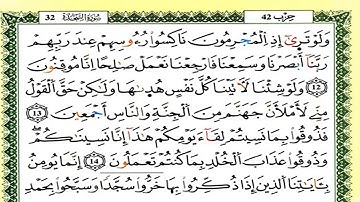 حزب 42 سورة السجدة 32
وَلَوْ تَرَىٰٓ إِذِ اِ۬لْمُجْرِمُونَ نَاكِسُواْ رُءُوسِهِمْ عِندَ رَبِّهِمْ
رَبَّنَآ أَبْصَرْنَا وَسَمِعْنَا فَارْجِعْنَا نَعْمَلْ صَٰلِحًا اِنَّا مُوقِنُونَ
12 وَلَوْ شِئْنَا لَأٓتَيْنَا كُلَّ نَفْسٍ هُد۪يٰهَا وَلَٰكِنْ حَقَّ اَ۬لْقَوْلُ
مِنِّے لَأَمْلَأَنَّ جَهَنَّمَ مِنَ اَ۬لْجِنَّةِ وَالنَّاسِ أَجْمَعِينَ 13
فَذُوقُواْ بِمَا نَسِيتُمْ لِقَآءَ يَوْمِكُمْ هَٰذَآ إِنَّا نَسِينَٰكُمْ
وَذُوقُواْ عَذَابَ اَ۬لْخُلْدِ بِمَا كُنتُمْ تَعْمَلُونَ 14 إِنَّمَا يُومِنُ
بِـَٔايَٰتِنَا اَ۬لذِينَ إِذَا ذُكِّرُواْ بِهَا خَرُّواْ سُجَّدًا وَسَبَّحُواْ بِحَمْدِ